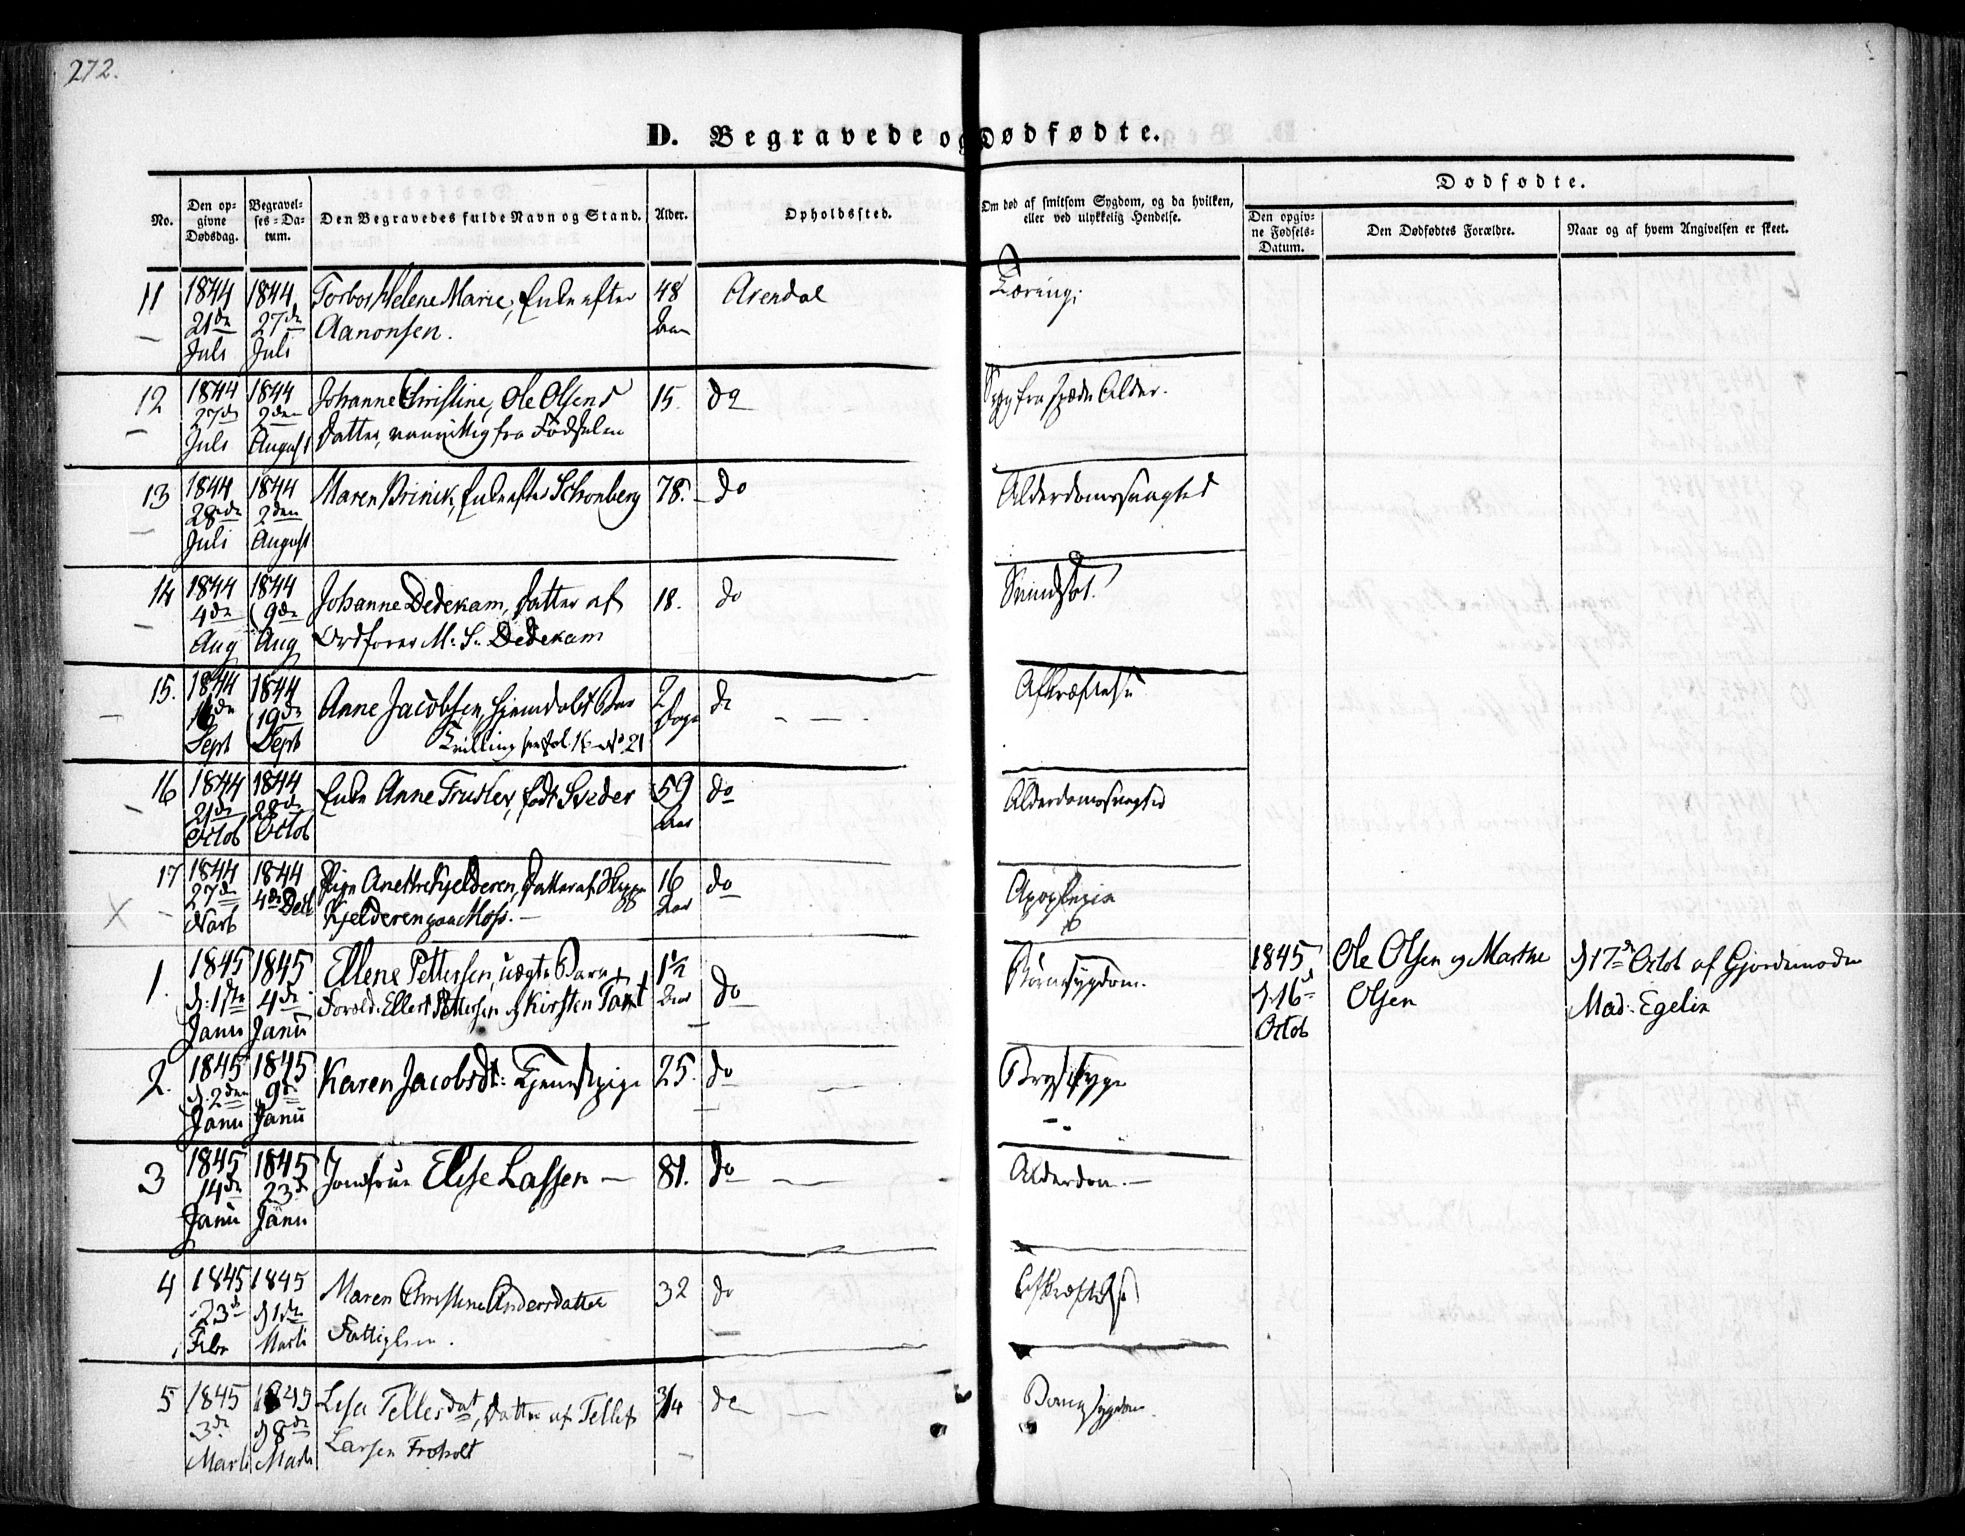 272.
D. Begravede og Dødfødte.
No.
Den op-
givne
Dødsdag.
Begravel-
ses-Da-
tum.
Den Begravedes fulde Navn og Stand.
Alder.
Opholdssted.
Om død af smitsom Sygdom, og da hvilken,
eller ved ulykkelig Hendelse.
Dødfødte.
Den opgiv-
ne Fødsels-
Datum.
Den Dødfødtes Forældre.
Naar og af hvem Angivelsen er skeet.
11 1844 1844 Helene Marie, Enke efter 48 Arendal Tæring;
21de 27de Aanonsen. Aar
Juli Juli
12 1844 1844 Johanne Christine, Ole Olsens 15. do Syg fra spæde Alder.
27de 2den Datter, vanvittig fra Fødselen
Juli August
13 1844 1844 Maren Brinck, Enke efter Schonberg 78. do Alderdomssvaghed
28de 2den
Juli August
14 1844 1844 Johanne Dedekam, Datter af 18. do Svindsot.
4de 9de Ordfører M. S. Dedekam
Aug Aug
15. 1844 1844 Anne Jacobsen, hjemdøbt Barn 2 do Afkræftelse
16de 19de Tvilling see fol. No. 21 Dage
Sept Sept
16 1844 1844 Enke Anne født 59 do Alderdomssvaghed
21de 28de Aar
Octob Octob
17 1844 1844 Pige Anethe Kjelderen, Datter af 16 do Apoplexia
27de 4de Dec Kjelderen paa Moss. Aar
X
1. 1845 1845 Ellene Pettersen, uægte Barn 1½ do Børnesygdom. 1845 Ole Olsen og Marthe d 17de Octob af Gjordemoder
d. 1ste 4de Foræld: Ellert Pettersen og Kirsten Aar d. 16d Olsen Mad: Egelia
Janu Janu Octob
2. 1845 1845 Karen Jacobsdt: Tjenestepige 25. do Brystsyge
d. 2den 9de
Janu Janu
3 1845 1845 Jomfrue Elise Lassen 81. do Alderdom.
14de 23de
Janu Janu
4 1845 1845 Maren Christine Andersdatter 32 do Afkræftelse
23de d 1ste Fattiglem.
Febr Marti
5 1845 1845 Lisa Tellesdat, Datter af Tellef 3/4 do Barnesygdom.
3de d 8de Larsen Froholt
Marti Marti